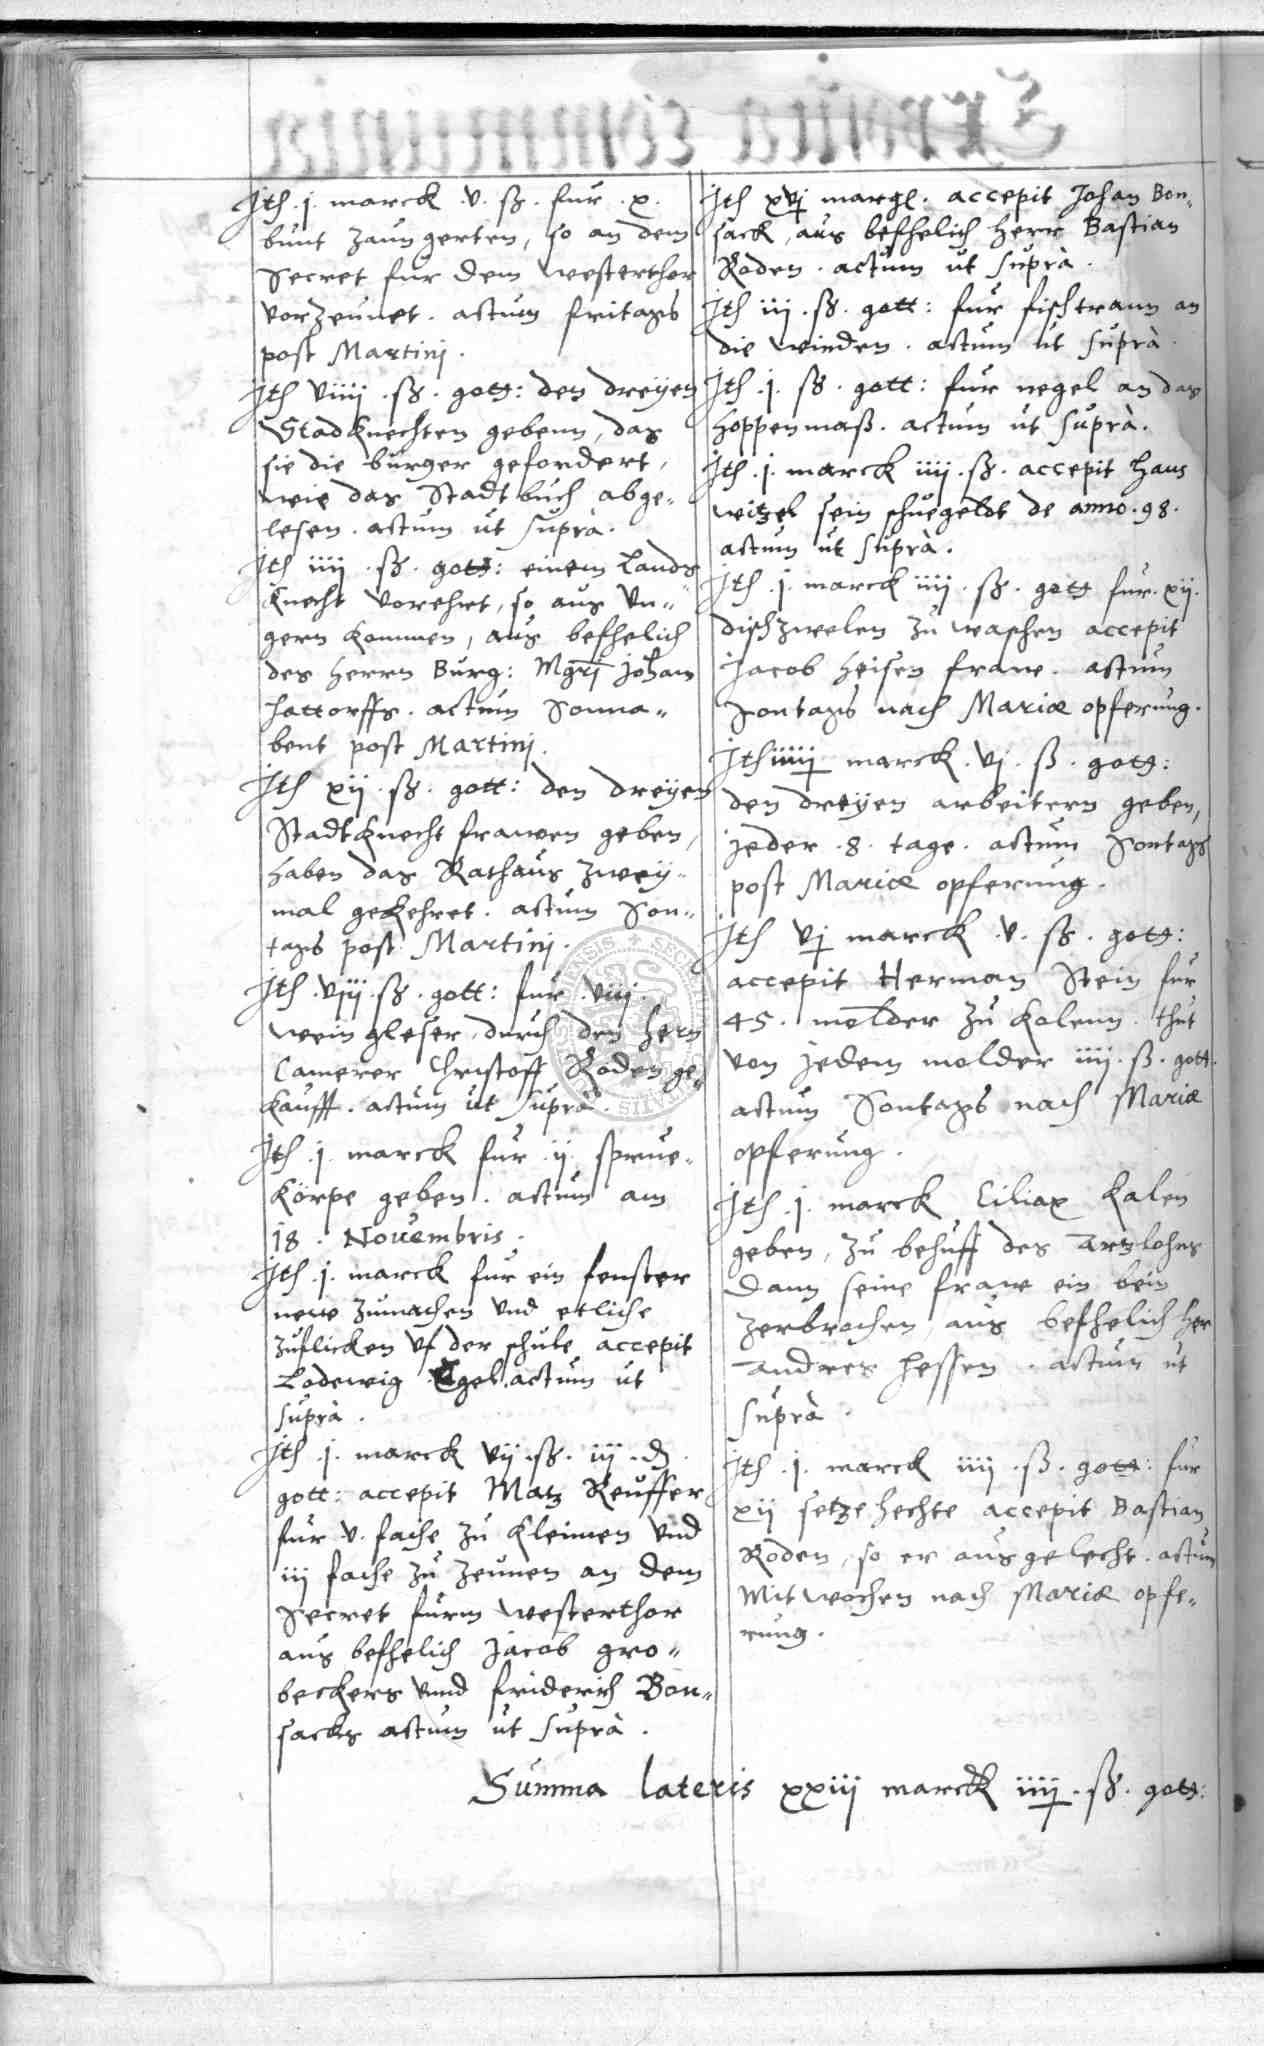 Jtem .j. marck .v. ß. fur .x.
bunt zaungerten, so an dem
Secret fur dem westerthor
vorzeunet. actum fritags
post Martinj.
Jtem viiij .ß. gott: den dreyen
Stadknechten gebenn, das
sie die burger gefordert,
wie das Stadtbuch abge„
lesen. actum ut suprà.
Jtem iiij .ß. gott: einem Lands
knecht vorehrt, so aus Vn„
gern kommen, aus befhelich
des herrn Burg: Mgri Johan
hattorffs. actum Sonna„
bent post Martinj.
Jtem xij .ß. gott: den dreyen
Stadtknecht frawen geben,
haben das Rathaus zwey„
mal gekehret. actum Son„
tags post Martinj.
Jtem .viij .ß. gott: fur .viij.
wein gleser, durch den hern
Camerer Christoff Roden ge„
kaufft. actum ut suprà.
Jtem .j. marck fur .ij. sprue„
körpe geben. actum am
18. Nouembris.
Jtem .j. marck fur ein fenster
new zumachen vnd etliche
zuflicken vf der schule accepit
Lodewig Egel. actum ut
suprà.
Jtem .j. marck vij .ß. iij .d.
gott: accepit Matz Reuffer
fur v. fache zu kleimen vnd
iij fache zu zeunen an dem
Secret furm westerthor
aus befhelich Jacob gro„
beckers vnnd friderich Bon„
sacks actum ut suprà.
Jtem xvj margl. accepit Johan Bon„
sack, aus befhelich herr Bastian
Roden. actum ut suprà.
Jtem iij .ß. gott: fur fischtrann an
die winden. actum ut suprà.
Jtem .j. ß. gott: fur negel an das
hoppenmaß. actum ut suprà.
Jtem .j. marck iiij .ß. accepit Hans
witzel sein schuegeldt de anno .98.
actum ut suprà.
Jtem .j. marck iiij .ß. gott fur .xij.
dischzwelen zu waschen accepit
Jacob Heisen fraw. actum
Sontags nach Mariæ opferung.
Jtem iiiij marck .vj. ß. gott:
den dreyen arbeitern geben,
jeder .8. tage. actum Sontags
post Mariæ opferung.
Jtem vj marck .v. ß. gott:
accepit Herman Stein fur
45. molder zu kolenn. thut
von jedem molder iiij. ß. gott.
actum Sontags nach Mariæ
opferung.
Jtem .j. marck Ciliax Kalen
geben, zu behuff des Artzlohns
dann seine fraw ein bein
zerbrochen, aus befhelich her
Andres Hessen. actum ut
suprà.
Jtem .j. marck iiij .ß. gott: fur
xij setzehechte accepit Bastian
Roden, so er ausgelecht. actum
Mitwochen nach Mariæ opfe„
rung.
Summa lateris xxiij marck iiij .ß. gott: